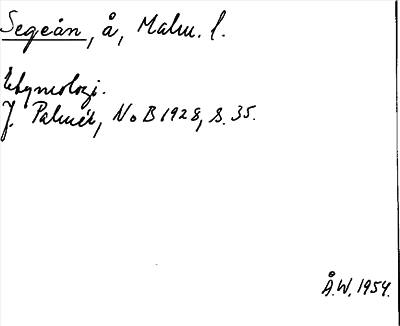 Segeån, å, Malm. l.
Etymologi.
J. Palmér, NoB 1928, s. 35.
Å.W. 1954.